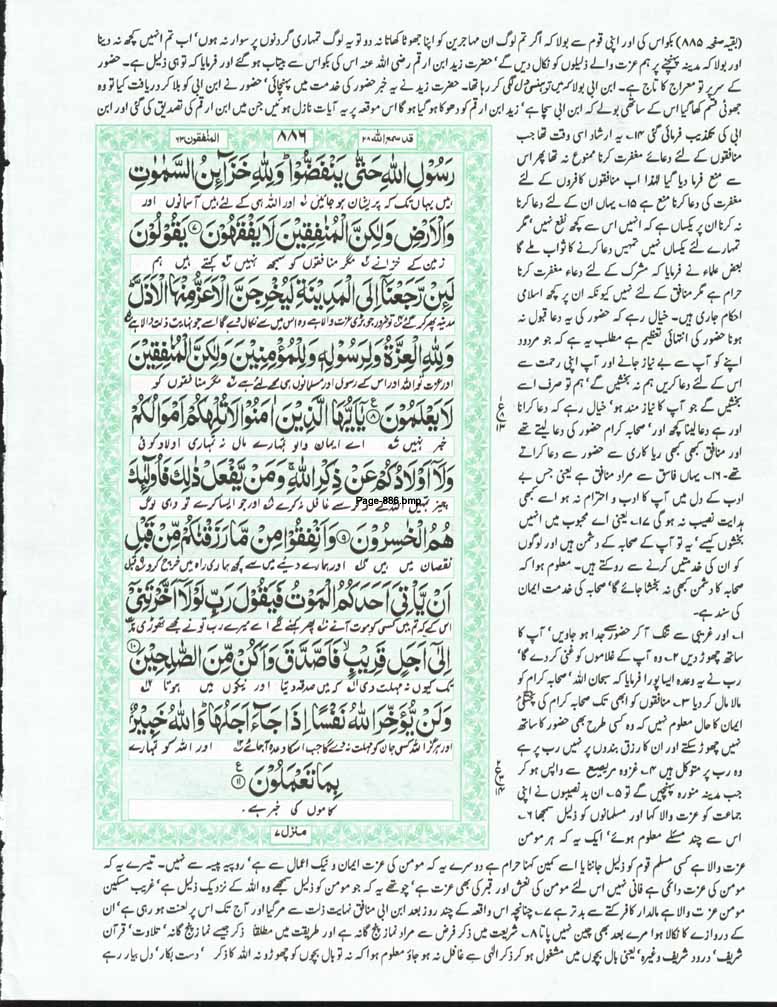 (بقیہ صفحہ ۸۸۵) بکواس کی اور اپنی قوم سے بولا کہ اگر تم لوگ ان مہاجرین کو اپنا جھوٹا کھاتا نہ دو تو یہ لوگ تمہاری گردنوں پر سوار نہ ہوں' اب تم انہیں کچھ نہ دینا
اور بولا کہ مدینہ پہنچنے پر ہم عزت والے ذلیلوں کو نکال دیں گے' حضرت زید ابن ارقم رضی اللہ عنہ اس کی بکواس سے بیتاب ہو گئے اور فرمایا کہ تو ہی ذلیل ہے۔ حضور
کے سر پر تو معراج کا تاج ہے۔ ابن ابی بولا کہ میں تو ہنسی دل لگی کر رہا تھا۔ حضرت زید نے یہ خبر حضور کی خدمت میں پہنچائی' حضور نے ابن ابی کو بلا کر دریافت کیا تو وہ
جھوٹی قسم کھا گیا اس کے ساتھی بولے کہ ابن ابی سچا ہے' زید ابن ارقم کو دھوکا ہو گیا ہو گا اس موقعہ پر یہ آیات نازل ہوئیں جن میں ابن ارقم کی تصدیق کی گئی اور ابن
ابی کی تکذیب فرمائی گئی ۱۴۔ یہ ارشاد اسی وقت تھا جب
منافقوں کے لئے دعائے مغفرت کرنا ممنوع نہ تھا پھر اس
سے منع فرما دیا گیا لہٰذا اب منافقوں کافروں کے لئے
مغفرت کی دعا کرنا منع ہے ۱۵۔ یہاں ان کے لئے دعا کرنا
نہ کرنا ان پر یکساں ہے کہ انہیں اس سے کچھ نفع نہیں' مگر
تمہارے لئے یکساں نہیں تمہیں دعا کرنے کا ثواب ملے گا
بعض علماء نے فرمایا کہ مشرک کے لئے دعاء مغفرت کرنا
حرام ہے مگر منافق کے لئے نہیں کیونکہ ان پر کچھ اسلامی
احکام جاری ہیں۔ خیال رہے کہ حضور کی یہ دعا قبول نہ
ہونا حضور کی انتہائی تعظیم ہے مطلب یہ ہے کہ جو مردود
اپنے کو آپ سے بے نیاز جانے اور آپ اپنی رحمت سے
اس کے لئے دعا کریں ہم نہ بخشیں گے' ہم تو صرف اسے
بخشیں گے جو آپ کا نیاز مند ہو' خیال رہے کہ دعا کرانا
اور ہے دعا لینا کچھ اور' صحابہ کرام حضور کی دعا لیتے تھے
اور منافق کبھی کبھی ریا کاری سے حضور سے دعا کراتے
تھے۔ ۱۶۔ یہاں فاسق سے مراد منافق ہے یعنی جس بے
ادب کے دل میں آپ کا ادب و احترام نہ ہو اسے کبھی
ہدایت نصیب نہ ہو گی ۱۷۔ یعنی اے محبوب میں انہیں
بخشوں کیسے' یہ تو آپ کے صحابہ کے دشمن ہیں اور لوگوں
کو ان کی خدمتیں کرنے سے روکتے ہیں۔ معلوم ہوا کہ
صحابہ کا دشمن کبھی نہ بخشا جائے گا' صحابہ کی خدمت ایمان
کی سند ہے۔
المنٰفقون ۶۳ ۸۸۶ قد سمع اللہ ۲۸
رَسُوْلِ اللّٰهِ حَتّٰى يَنْفَضُّوْا ۗ وَلِلّٰهِ خَزَآئِنُ السَّمٰوٰتِ
ہیں یہاں تک کہ پریشان ہو جائیں اور اللہ ہی کے لئے ہیں آسمانوں اور
وَالْاَرْضِ وَلٰكِنَّ الْمُنٰفِقِيْنَ لَا يَفْقَهُوْنَ ۝۷ يَقُوْلُوْنَ
زمین کے خزانے مگر منافقوں کو سمجھ نہیں کہتے ہیں ہم
لَئِنْ رَّجَعْنَآ اِلَى الْمَدِيْنَةِ لَيُخْرِجَنَّ الْاَعَزُّ مِنْهَا الْاَذَلَّ ۗ
مدینہ پھر کر گئے تو ضرور جو بڑی عزت والا ہے وہ اس میں سے نکال دے گا اسے جو نہایت ذلت والا ہے
وَلِلّٰهِ الْعِزَّةُ وَلِرَسُوْلِهٖ وَلِلْمُؤْمِنِيْنَ وَلٰكِنَّ الْمُنٰفِقِيْنَ
اور عزت تو اللہ اور اس کے رسول اور مسلمانوں ہی کے لئے ہے مگر منافقوں کو
لَا يَعْلَمُوْنَ ۝۸ يٰٓاَيُّهَا الَّذِيْنَ اٰمَنُوْا لَا تُلْهِكُمْ اَمْوَالُكُمْ
خبر نہیں اے ایمان والو تمہارے مال نہ تمہاری اولاد کوئی
وَلَآ اَوْلَادُكُمْ عَنْ ذِكْرِ اللّٰهِ ۚ وَمَنْ يَّفْعَلْ ذٰلِكَ فَاُولٰٓئِكَ
چیز تمہیں اللہ کے ذکر سے غافل نہ کرے اور جو ایسا کرے تو وہی لوگ
Page-886.bmp
هُمُ الْخٰسِرُوْنَ ۝۹ وَاَنْفِقُوْا مِنْ مَّا رَزَقْنٰكُمْ مِّنْ قَبْلِ
نقصان میں ہیں اور ہمارے دیئے میں سے کچھ ہماری راہ میں خرچ کرو قبل
اَنْ يَّاْتِيَ اَحَدَكُمُ الْمَوْتُ فَيَقُوْلَ رَبِّ لَوْلَآ اَخَّرْتَنِيْٓ
اس کے کہ تم میں کسی کو موت آئے پھر کہنے لگے اے میرے رب تو نے مجھے تھوڑی مدت
اِلٰٓى اَجَلٍ قَرِيْبٍ ۙ فَاَصَّدَّقَ وَاَكُنْ مِّنَ الصّٰلِحِيْنَ ۝۱۰
تک کیوں نہ مہلت دی کہ میں صدقہ دیتا اور نیکوں میں ہوتا
وَلَنْ يُّؤَخِّرَ اللّٰهُ نَفْسًا اِذَا جَآءَ اَجَلُهَا ۗ وَاللّٰهُ خَبِيْرٌۢ
اور ہرگز اللہ کسی جان کو مہلت نہ دے گا جب اس کا وعدہ آ جائے اور اللہ کو تمہارے
بِمَا تَعْمَلُوْنَ ۝۱۱
کاموں کی خبر ہے۔
منزل ۷
۱۔ اور غریبی سے تنگ آ کر حضور سے جدا ہو جاویں' آپ کا
ساتھ چھوڑ دیں ۲۔ وہ آپ کے غلاموں کو غنی کر دے گا'
رب نے یہ وعدہ ایسا پورا فرمایا کہ سبحان اللہ' صحابہ کرام کو
مالا مال کر دیا ۳۔ منافقوں کو ابھی تک صحابہ کرام کی پختگی
ایمان کا حال معلوم نہیں کہ وہ کسی طرح بھی حضور کا ساتھ
نہیں چھوڑ سکتے اور ان کا رزق بندوں پر نہیں رب پر ہے
وہ رب پر متوکل ہیں ۴۔ غزوہ مریسیع سے واپس ہو کر
جب مدینہ منورہ پہنچیں گے تو ۵۔ ان بدنصیبوں نے اپنی
جماعت کو عزت والا کہا اور مسلمانوں کو ذلیل سمجھا ۶۔
اس سے چند مسئلے معلوم ہوئے' ایک یہ کہ ہر مومن
عزت والا ہے کسی مسلم قوم کو ذلیل جاننا یا اسے کمین کہنا حرام ہے دوسرے یہ کہ مومن کی عزت ایمان و نیک اعمال سے ہے' روپیہ پیسہ سے نہیں۔ تیسرے یہ کہ
مومن کی عزت دائمی ہے فانی نہیں اس لئے مومن کی نعش اور قبر کی بھی عزت ہے' چوتھے یہ کہ جو مومن کو ذلیل سمجھے وہ اللہ کے نزدیک ذلیل ہے' غریب مسکین
مومن عزت والا ہے مالدار کافر کتے سے بدتر ہے ۷۔ چنانچہ اس واقعہ کے چند روز بعد ابن ابی منافق نہایت ذلت سے مر گیا اور آج تک اس پر لعنت ہو رہی ہے' ان
کے دروازے کا نکالا ہوا مرے بعد بھی چین نہیں پاتا ۸۔ شریعت میں ذکر فرض سے مراد نماز پنج گانہ ہے اور طریقت میں مطلقاً ذکر جیسے نماز پنج گانہ' تلاوت' قرآن
شریف' درود شریف وغیرہ' یعنی بال بچوں میں مشغول ہو کر ذکر الٰہی سے غافل نہ ہو جاؤ معلوم ہوا کہ نہ تو بال بچوں کو چھوڑو نہ اللہ کا ذکر ' دست بکار' دل بیار رہے